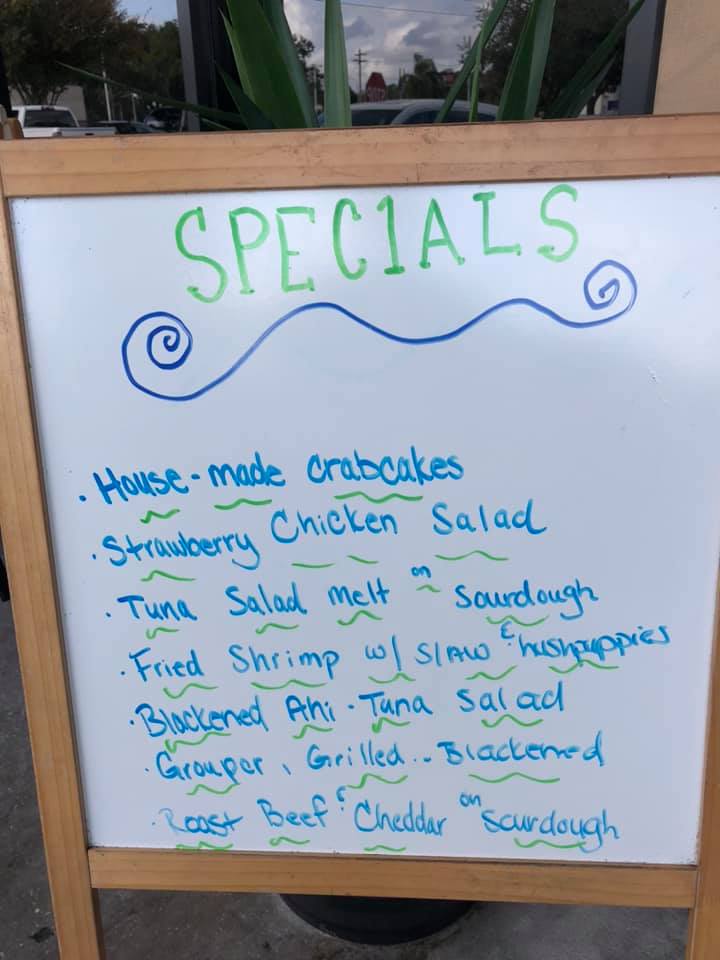 SPECIALS
. House-made crabcakes
. Strawberry Chicken Salad
. Tuna Salad melt on Sourdough
. Fried Shrimp w/ Slaw & hushpuppies
. Blackened Ahi-Tuna Salad
. Grouper, Grilled.. Blackened
. Roast Beef & Cheddar on Sourdough